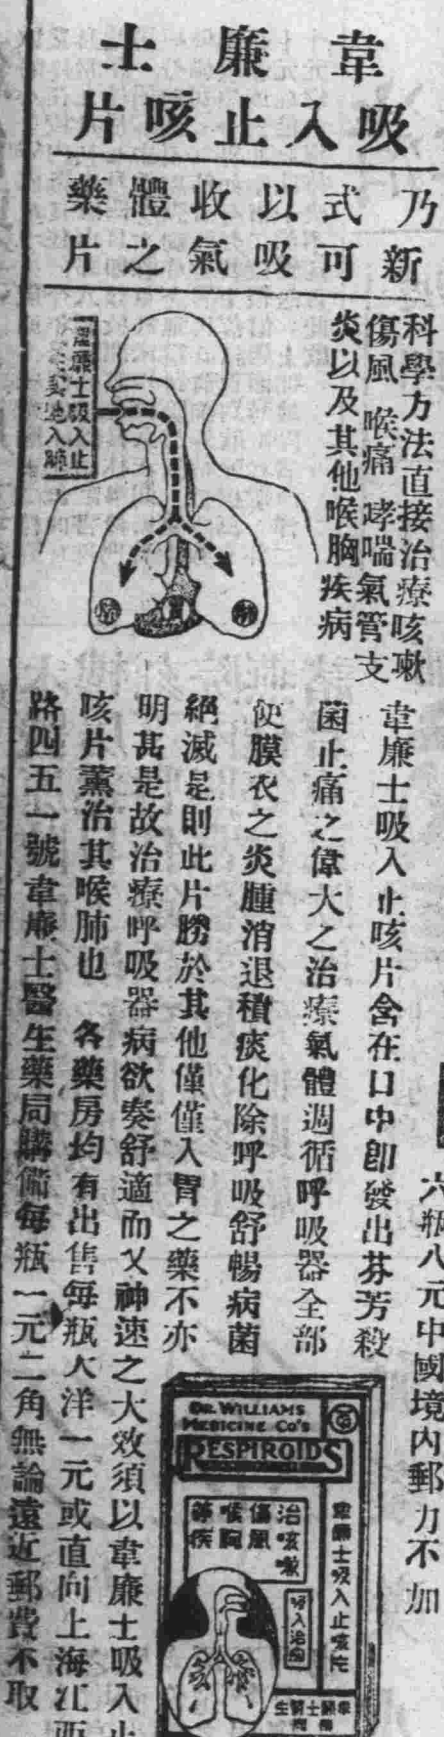 韋廉士
吸入止咳片
乃新式可以吸收氣體之藥片
科學方法直接治療咳嗽
傷風 喉痛 哮喘氣管支
炎以及其他喉胸疾病
韋廉士吸入止
肺
肺
韋廉士吸入止咳片含在口中卽發出芬芳殺
菌止痛之偉大之治療氣體週循呼吸器全部
使膜衣之炎腫消退積痰化除呼吸舒暢病菌
絕滅是則此片勝於其他僅僅入胃之藥不亦
明甚是故治療呼吸器病欲奏舒適而又神速之大效須以韋廉士吸入止
咳片薰治其喉肺也 各藥房均有出售每瓶大洋一元或直向上海江西
路四五一號韋廉士醫生藥局購備每瓶一元二角無論遠近郵費不取
六瓶八元中國境內郵力不加
DR. WILLIAMS
MEDICINE CO'S
RESPIROIDS
韋廉士吸入止咳片
治咳嗽
傷風
喉胸
等疾
吸入治病